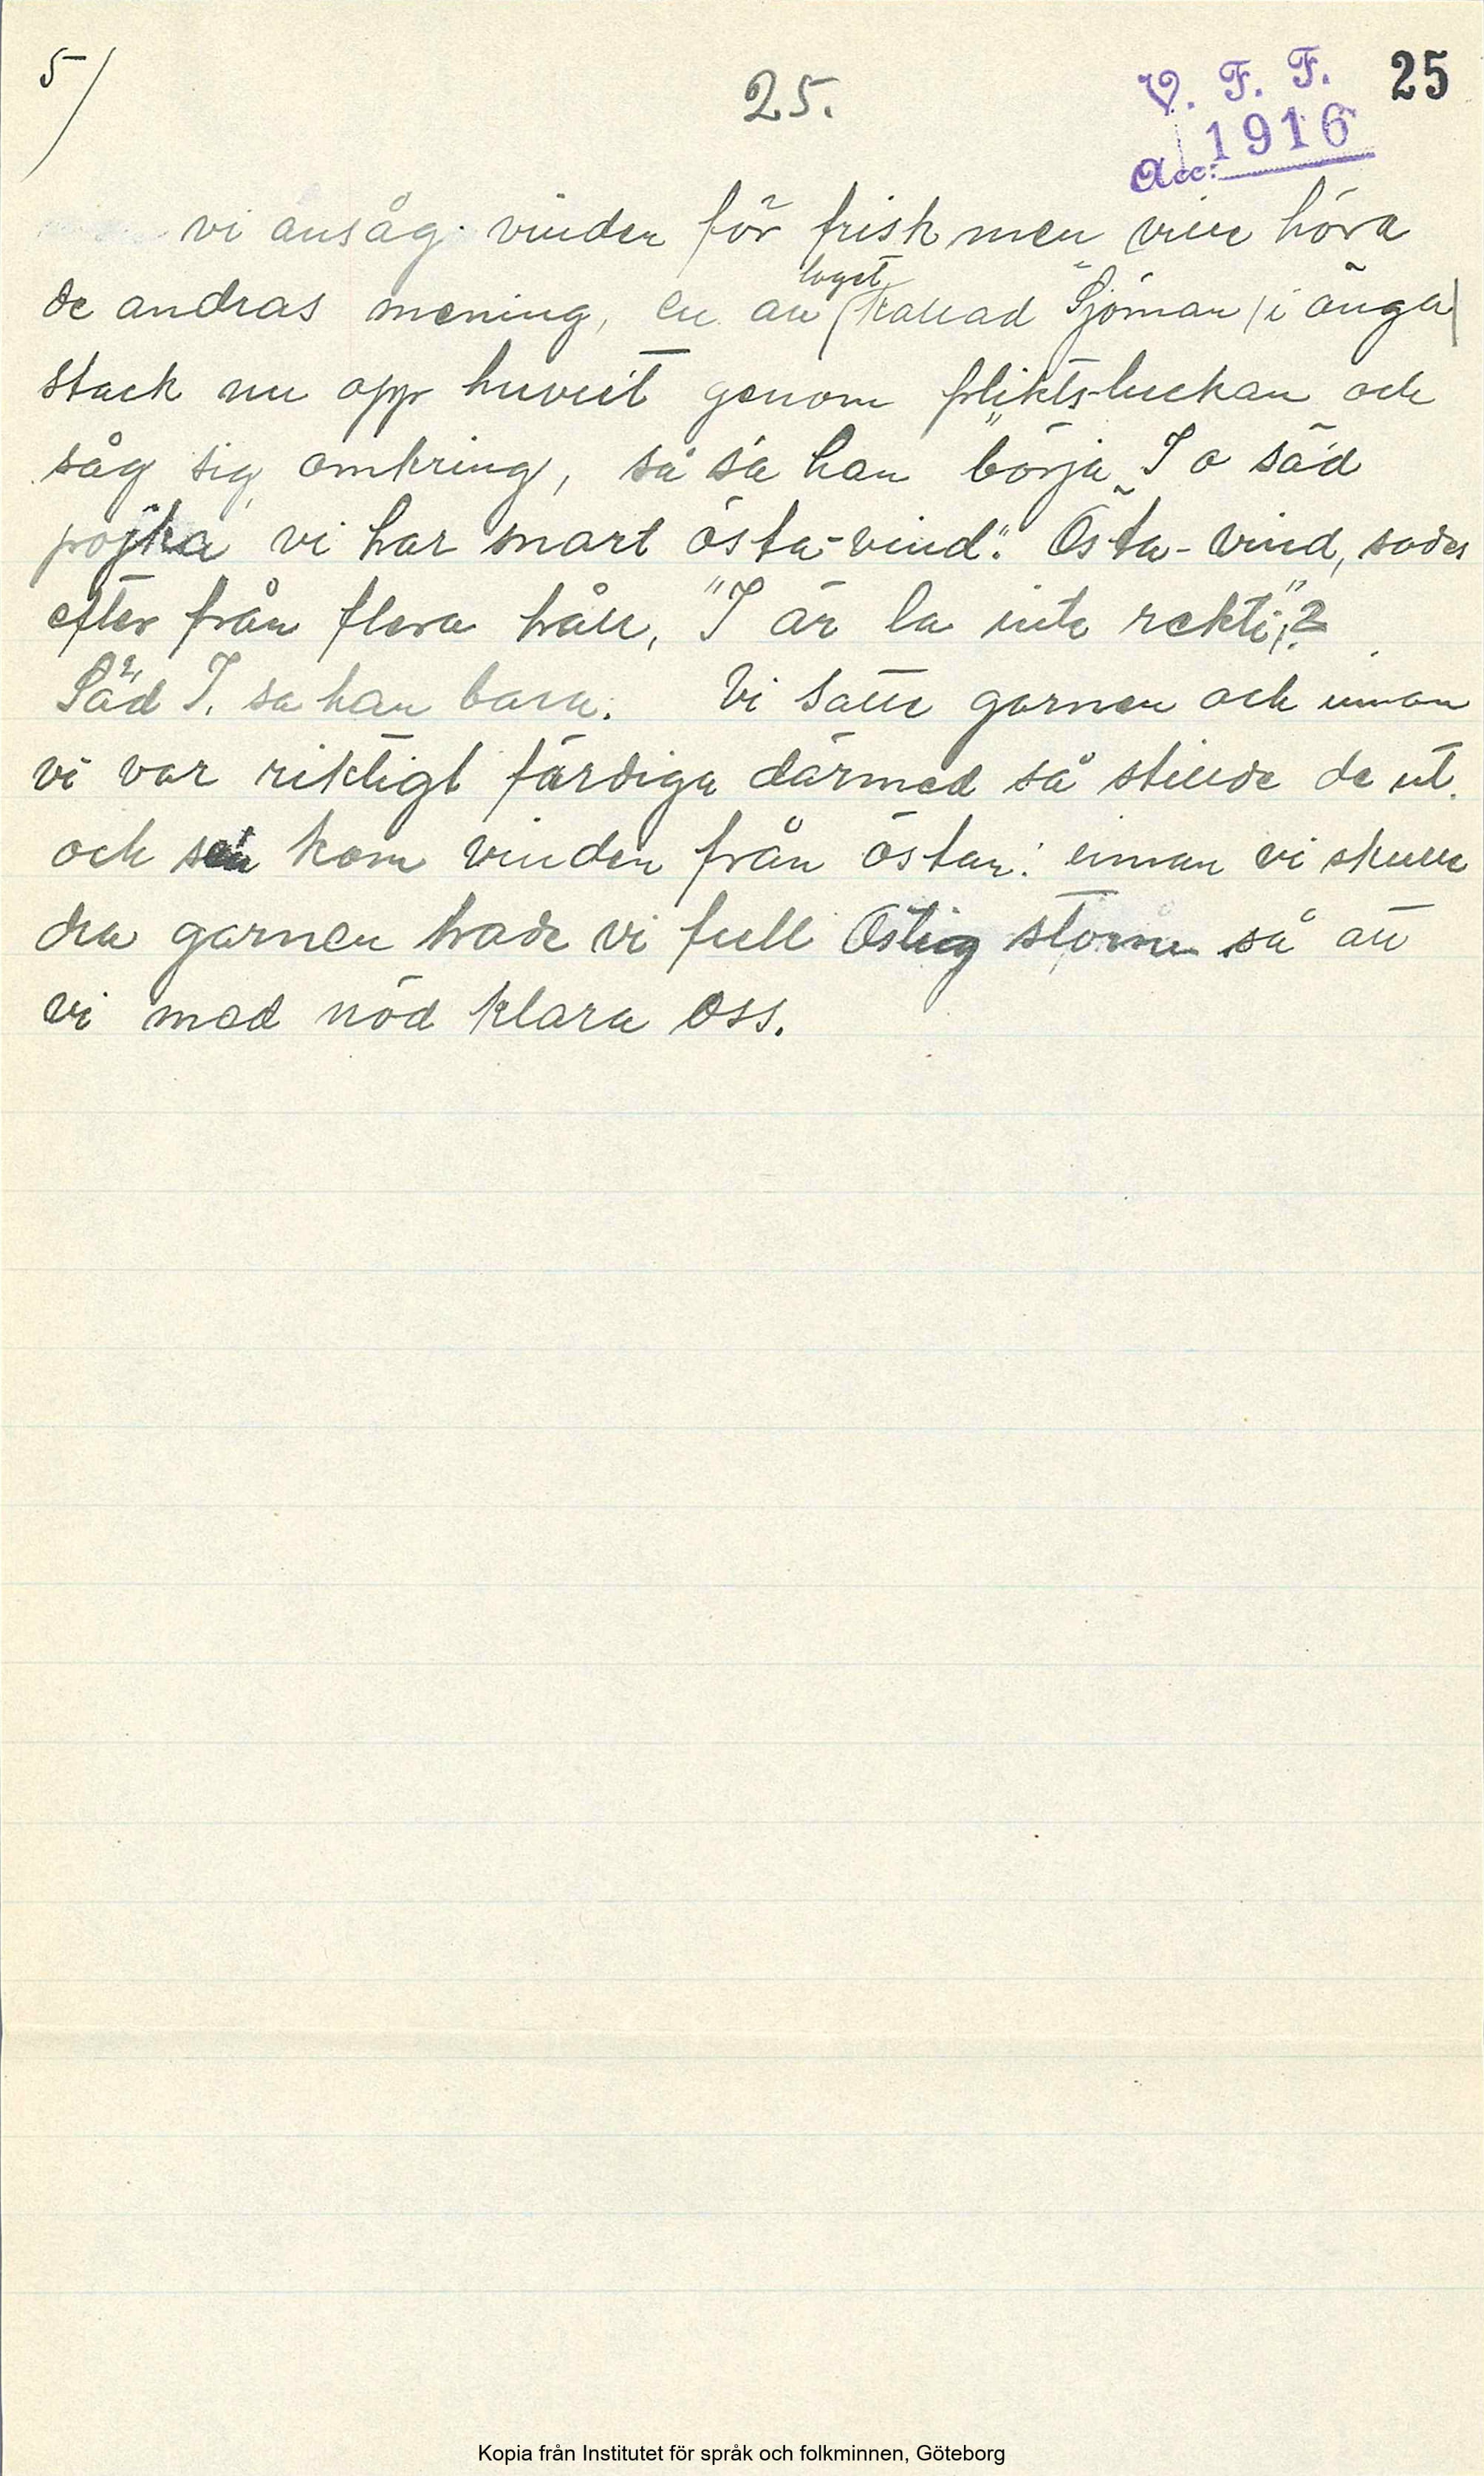 5/
25.
V. F. F.
25
Acc: 1916
vi ansåg vinden för frisk men ville höra
laget
de andras mening, en av (kallad "Sjöman" (i ånga)
stack nu opp huvut genom pliktsluckan och
såg sig omkring, så sa han "börja I o säd
pojka vi har snart östa-vind". Östa-vind, sades
efter från flera håll, "I är la inte rekti"?
Säd I, sa han bara. Vi satte garnen och innan
vi var riktigt färdiga därmed så stillde de ut.
och sen kom vinden från östan: innan vi skulle
dra garnen hade vi full Östig storm så att
vi med nöd klara oss.
Kopia från Institutet för språk och folkminnen, Göteborg